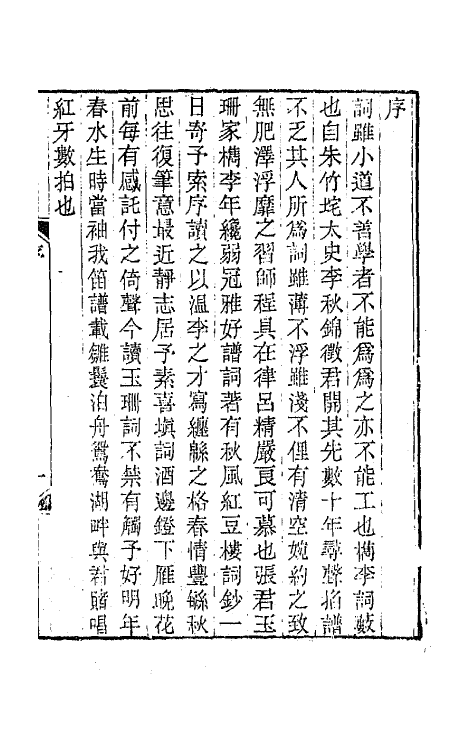 序
詞雖小道不善學者不能爲爲之亦不能工也檇李詞藪
也自朱竹垞太史李秋錦徵君開其先數十年尋聲掐譜
不乏其人所爲詞雖薄不浮雖淺不俚有清空婉約之致
無肥澤浮靡之習師程具在律呂精嚴良可慕也張君玉
珊家檇李年纔弱冠雅好譜詞著有秋風紅豆樓詞鈔一
日寄予索序讀之以溫李之才寫纏緜之格春情豐緜秋
思往復筆意最近靜志居予素喜塡詞酒邊鐙下雁晚花
前每有感託付之倚聲今讀玉珊詞不禁有觸予好明年
春水生時當袖我笛譜載雛鬟泊舟鴛鴦湖畔與君賭唱
紅牙數拍也
序
一